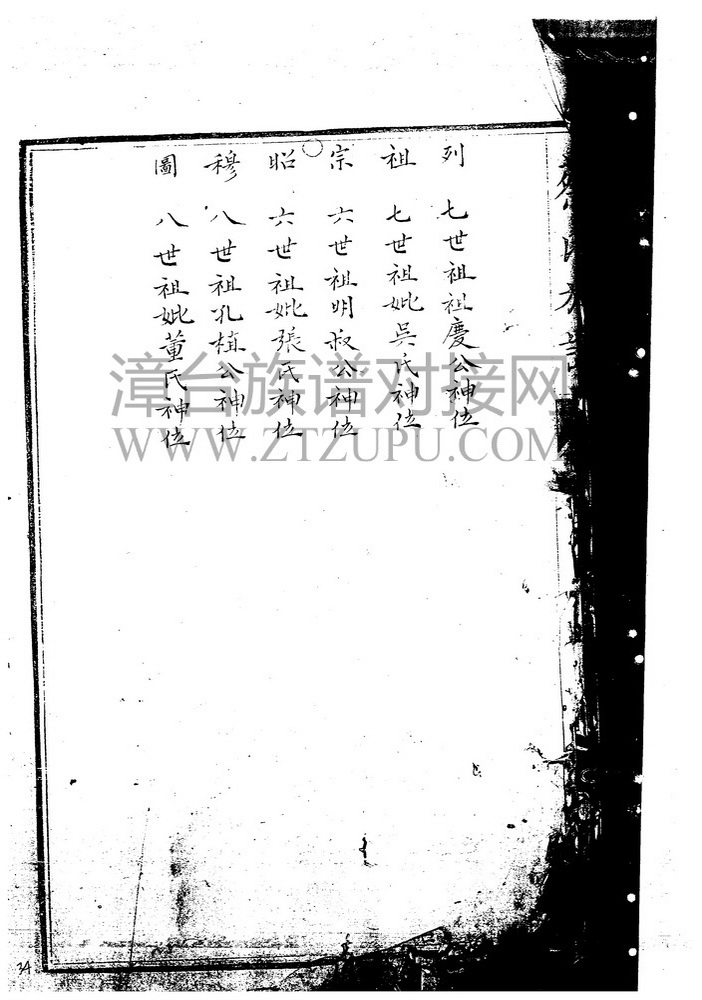 列 七世祖祖慶公神位
祖 七世祖妣吳氏神位
宗 六世祖明叔公神位
昭 六世祖妣張氏神位
穆 八世祖孔植公神位
圖 八世祖妣董氏神位
漳台族谱对接网
WWW.ZTZUPU.COM
34